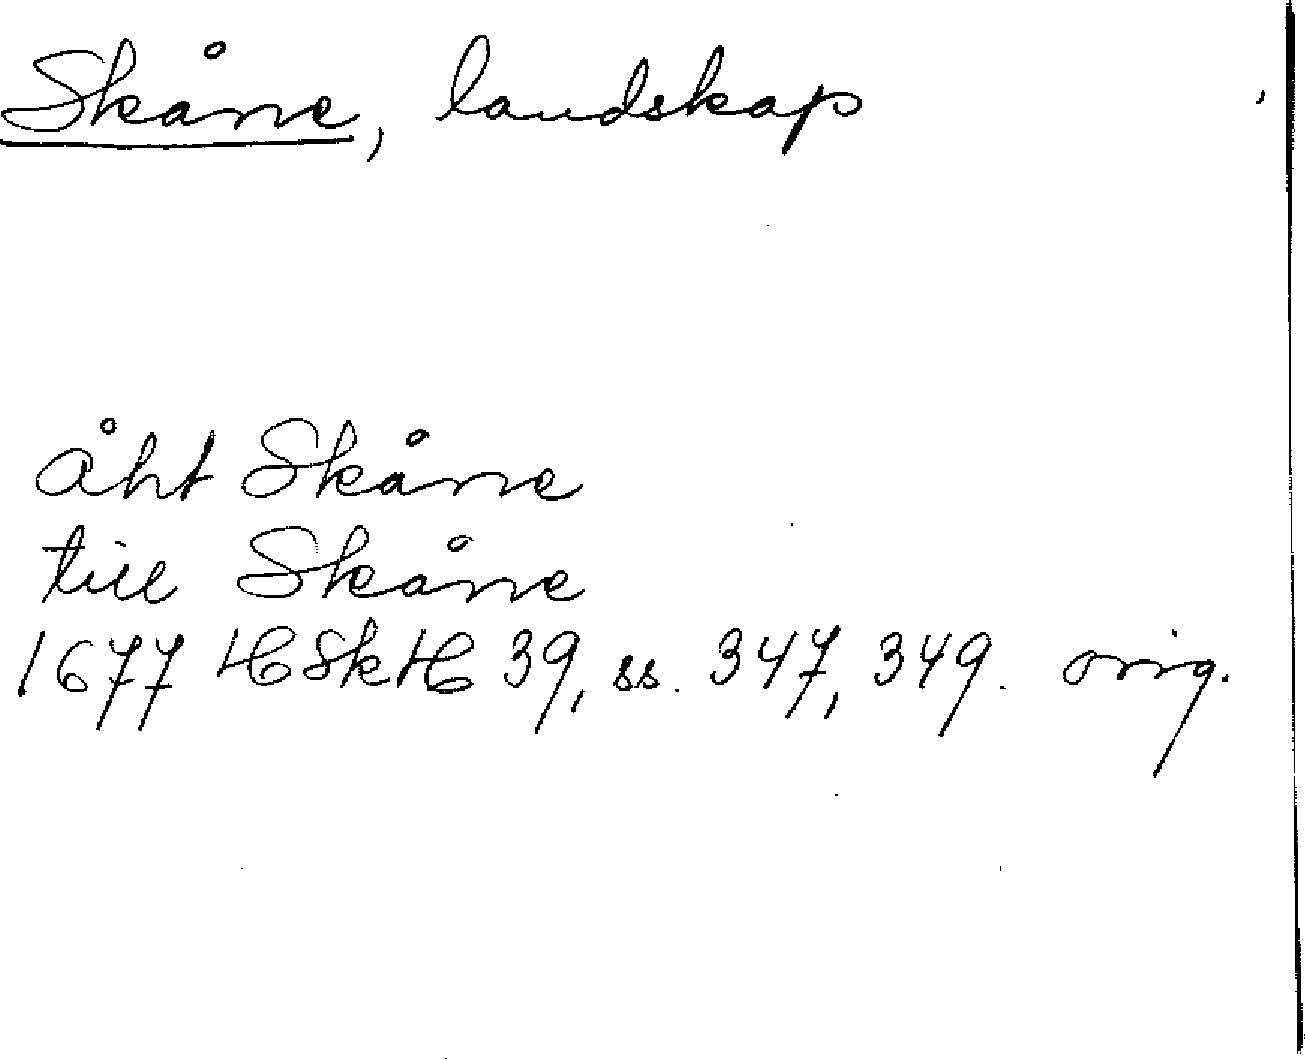 Skåne, landskap
åht Skåne
till Skåne
1677 HSkH 39, ss. 347, 349. orig.